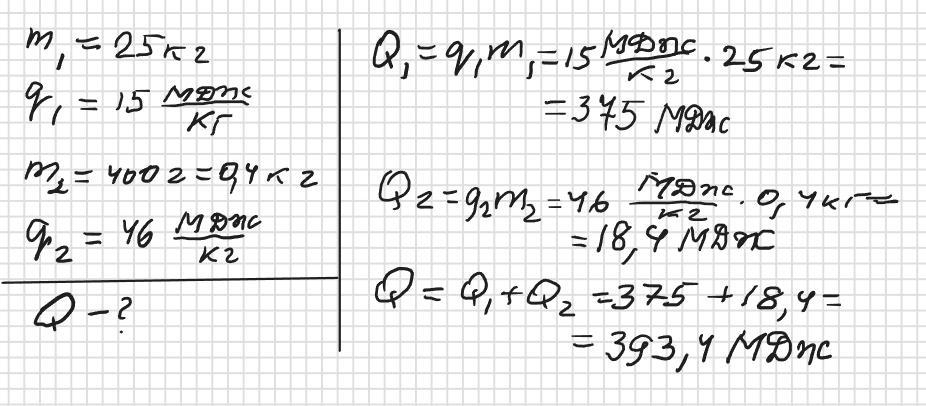 m₁ = 25 кг
q₁ = 15 МДж/кг
m₂ = 400 г = 0,4 кг
q₂ = 46 МДж/кг
Q - ?
Q₁ = q₁m₁ = 15 МДж/кг · 25 кг =
= 375 МДж
Q₂ = q₂m₂ = 46 МДж/кг · 0,4 кг =
= 18,4 МДж
Q = Q₁ + Q₂ = 375 + 18,4 =
= 393,4 МДж